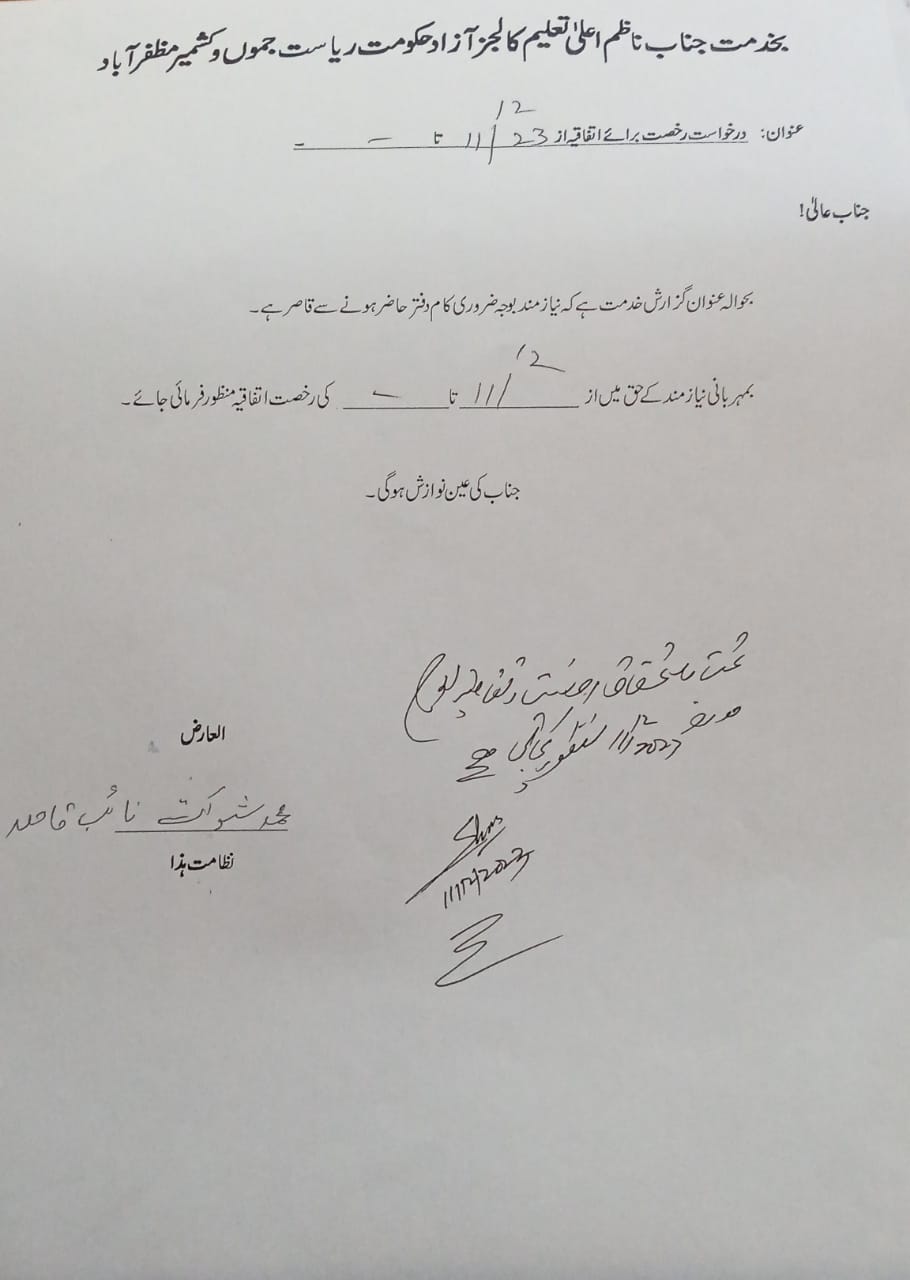 بخدمت جناب ناظم اعلیٰ تعلیم کالجز آزاد حکومت ریاست جموں و کشمیر مظفرآباد
عنوان: درخواست رخصت برائے اتفاقیہ از 11/12 23 تا - ۔
جناب عالیٰ!
بحوالہ عنوان گزارش خدمت ہے کہ نیاز مند بوجہ ضروری کام دفتر حاضر ہونے سے قاصر ہے۔
بمہربانی نیاز مند کے حق میں از 11/12 تا - کی رخصت اتفاقیہ منظور فرمائی جائے۔
جناب کی عین نوازش ہوگی۔
تحت استحقاق رخصت اتفاقیہ یوم
مورخہ 11/12/2023 منظور کی جاتی ہے
11/12/2023
العارض
محمد شوکت نائب قاصد
نظامت ہذا